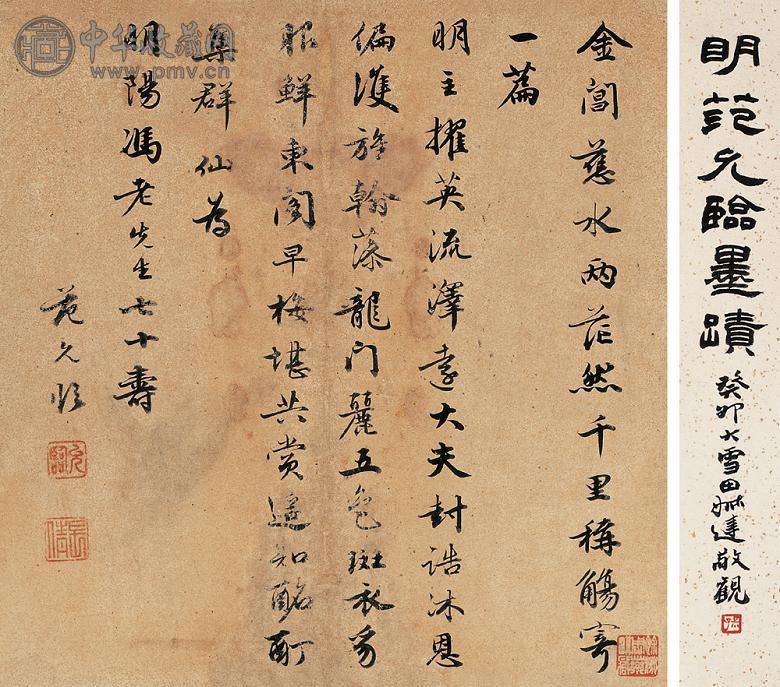 明范允臨墨蹟
癸卯大雪田達敬觀
金閶慈水兩茫然千里稱觴寄
一篇
明主擢英流澤遠大夫封誥沐恩
偏雙旌翰藻龍門麗五色斑衣豸
服鮮東閣早梅堪共賞遙知酩酊
集群仙為
明陽馮老先生七十壽
范允臨
允臨
長倩
中华收藏网
www.pmv.cn